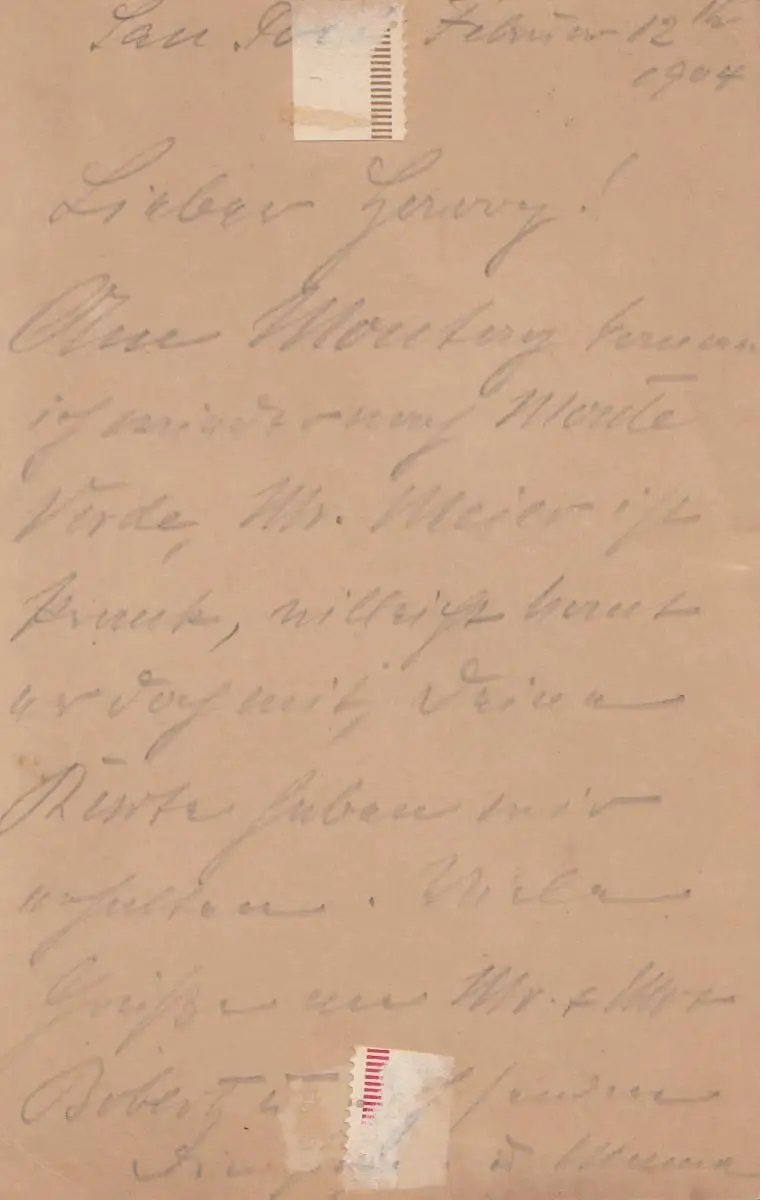 San José Februar 12th
1904
Lieber Harry!
Am Montag komme
ich wieder nach Monte
Verde, Mr. Meier ist
krank, villeicht komt
er doch mit, Deine
Karte haben wir
erhalten. Viele
Grüße an Mr. & Mrs
senden
u Mama